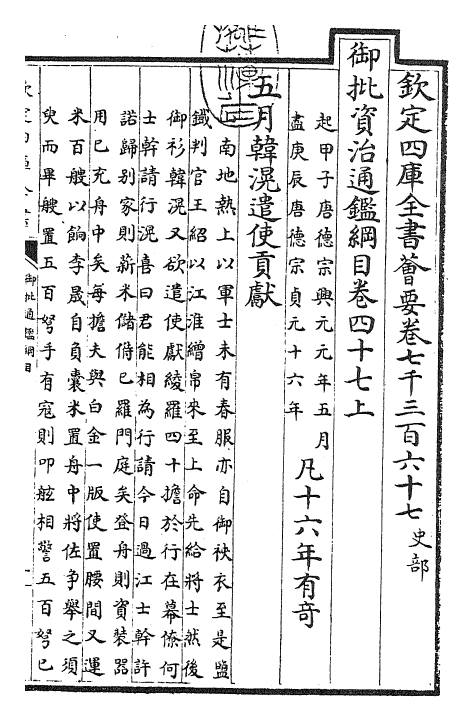 欽定四庫全書薈要卷七千三百六十七 史部
御批資治通鑑綱目卷四十七上
起甲子唐德宗興元元年五月
盡庚辰唐德宗貞元十六年
凡十六年有奇
五月韓滉遣使貢獻
南地熱上以軍士未有春服亦自御裌衣至是鹽
鐵判官王紹以江淮繒帛來至上命先給將士然後
御衫韓滉又欲遣使獻綾羅四十擔於行在幕僚何
士幹請行滉喜曰君能相為行請今日過江士幹許
諾歸别家則薪米儲偫已羅門庭矣登舟則資裝器
用已充舟中矣每擔夫與白金一版使置腰間又運
米百艘以餉李晟自負囊米置舟中將佐争舉之須
臾而畢艘置五百弩手有寇則叩舷相警五百弩已
御批通鑑綱目